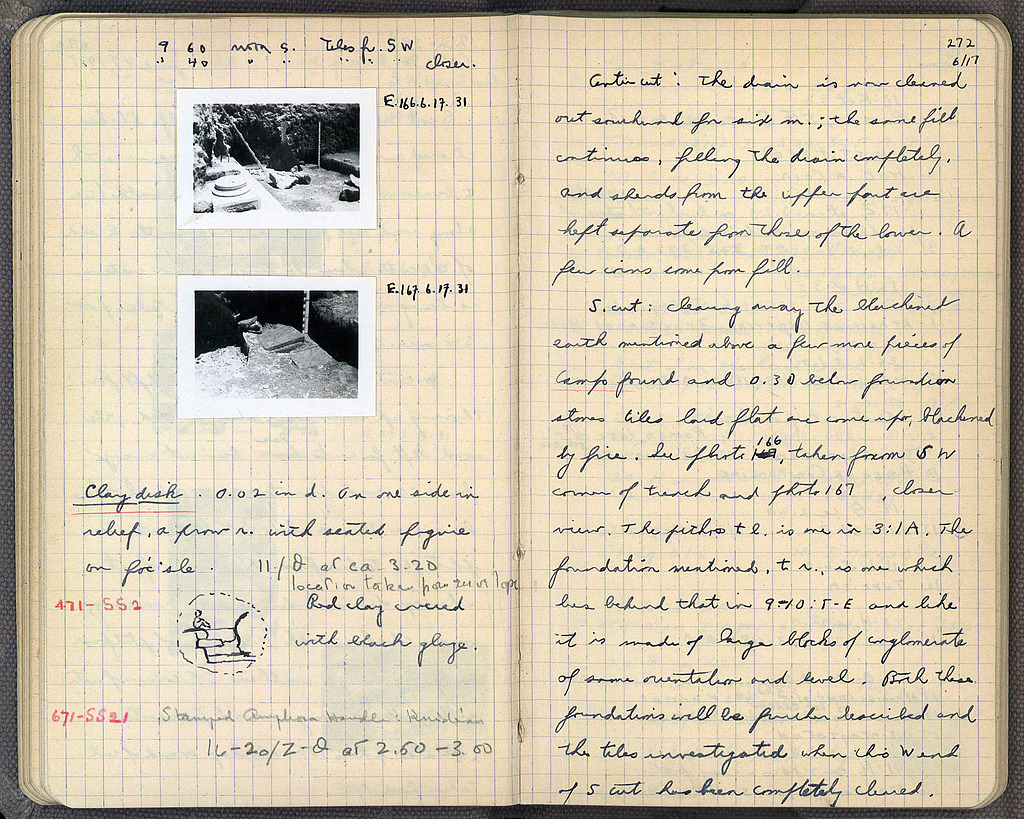 9 60 from S. Tiles fr. S W
" 40 " " " " closer.
E.166.6.17.31
E.167.6.17.31
Clay dish. 0.02 in d. On one side in
relief, a prow r. with seated figure
on foc'sle. 11/Θ at ca. 3.20
location taken from
Red clay covered
471-SS2
with black glaze.
671-SS21 Stamped Amphora Handle: Knidian
16-20/Z-Θ at 2.50-3.00
272
6/17
Contin cut: The drain is now cleaned
out southward for six m.; the same fill
continues, filling the drain completely,
and sherds from the upper part are
kept separate from those of the lower. A
few coins come from fill.
S. cut: Clearing away the blackened
earth mentioned above a few more pieces of
lamps found and 0.30 below foundation
stones tiles laid flat are come upon, blackened
by fire. See photo 166, taken from S W
corner of trench and photo 167, closer
view. The pithos t l. is one in 3:1A. The
foundation mentioned, t r., is one which
lies behind that in 9-10:Γ-E and like
it is made of large blocks of conglomerate
of same orientation and level. Both these
foundations will be further described and
the tiles investigated when this W end
of S cut has been completely cleared.